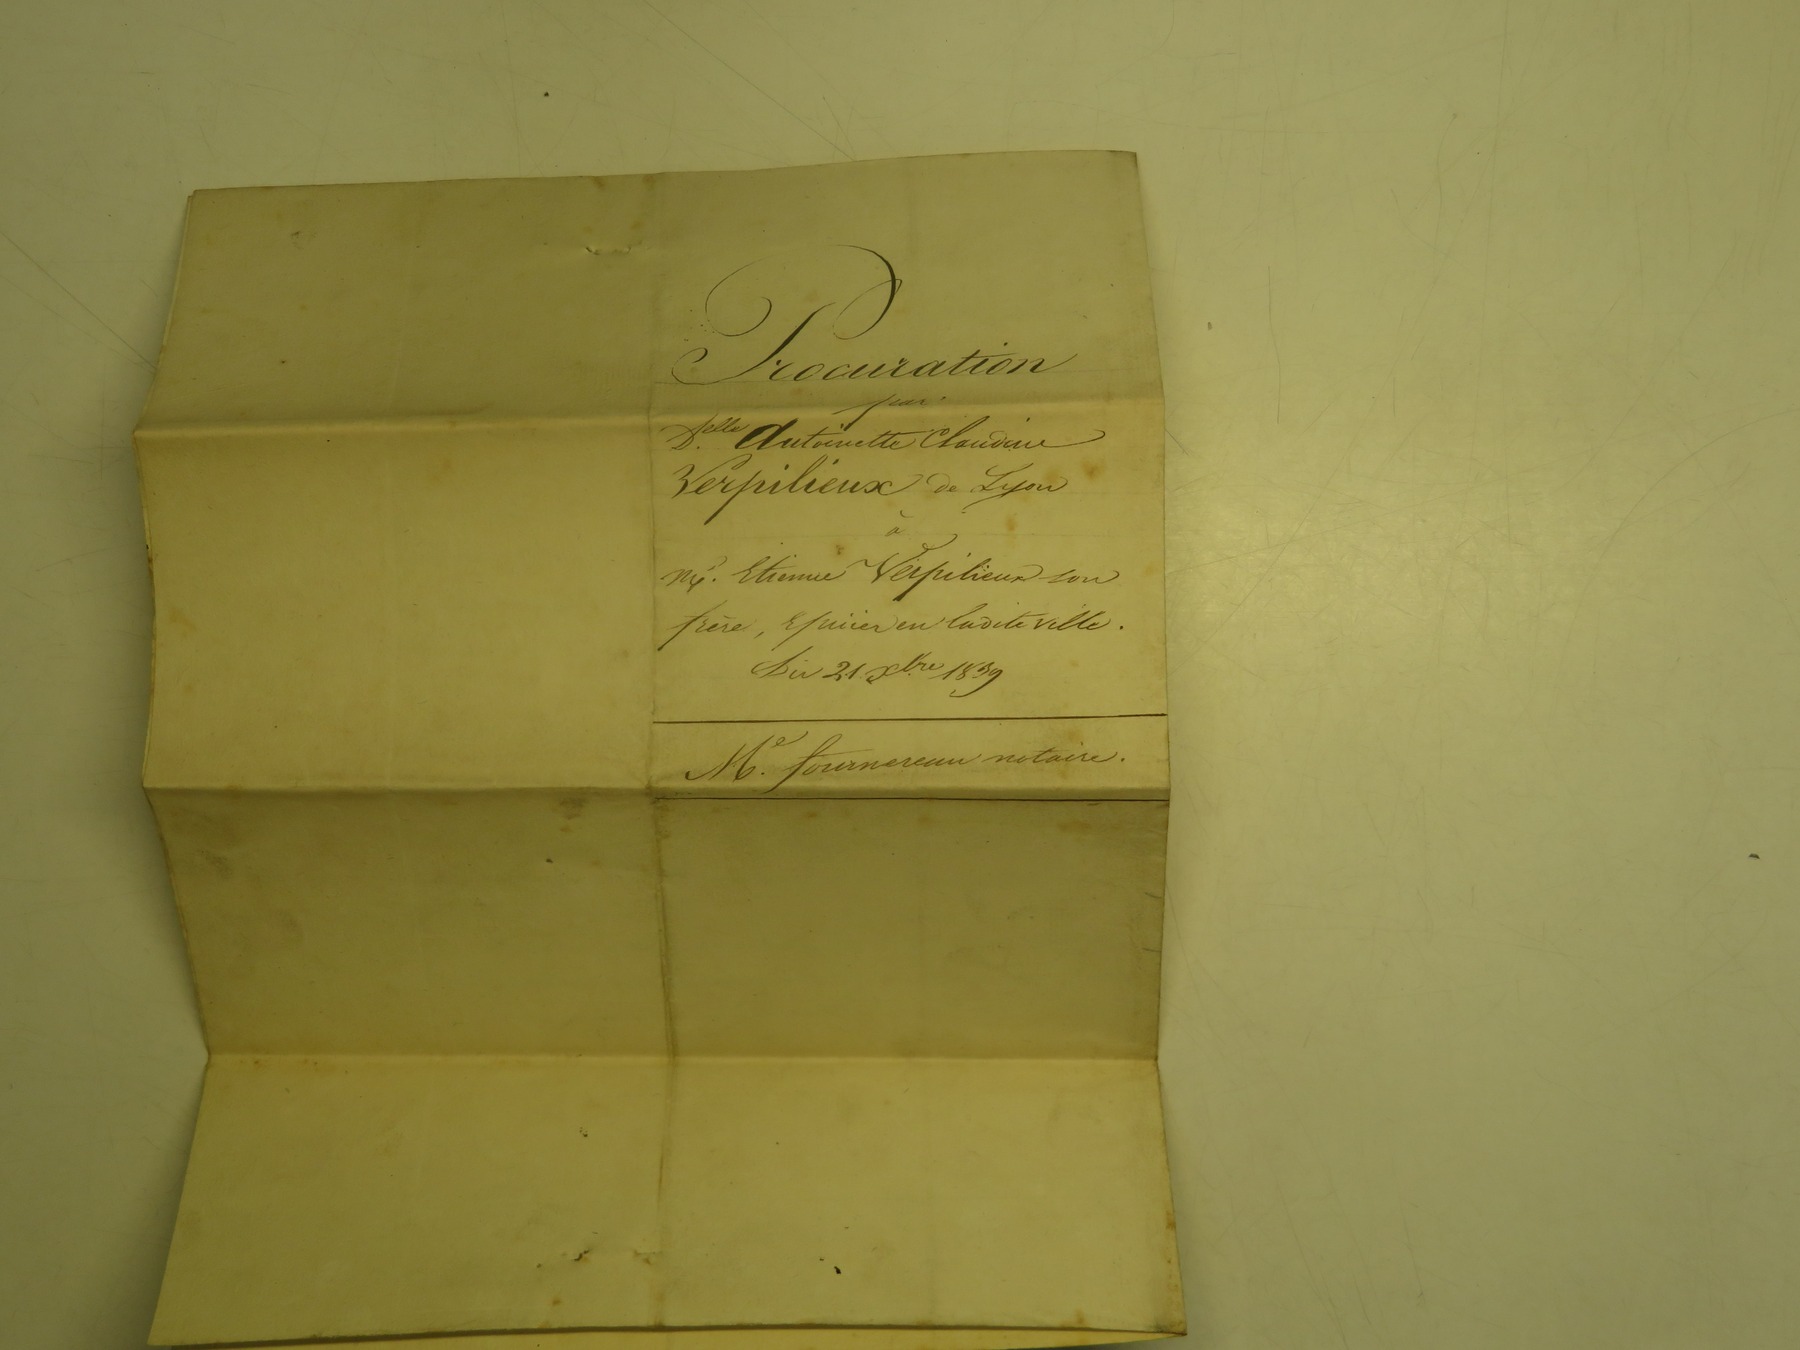 Procuration
par
D.elle Antoinette Claudine
Verpilieux de Lyon
à
Mr. Etienne Verpilieux son
frère, Epicier en ladite ville.
Du 21 Xbre 1839
Me. fournereau notaire.